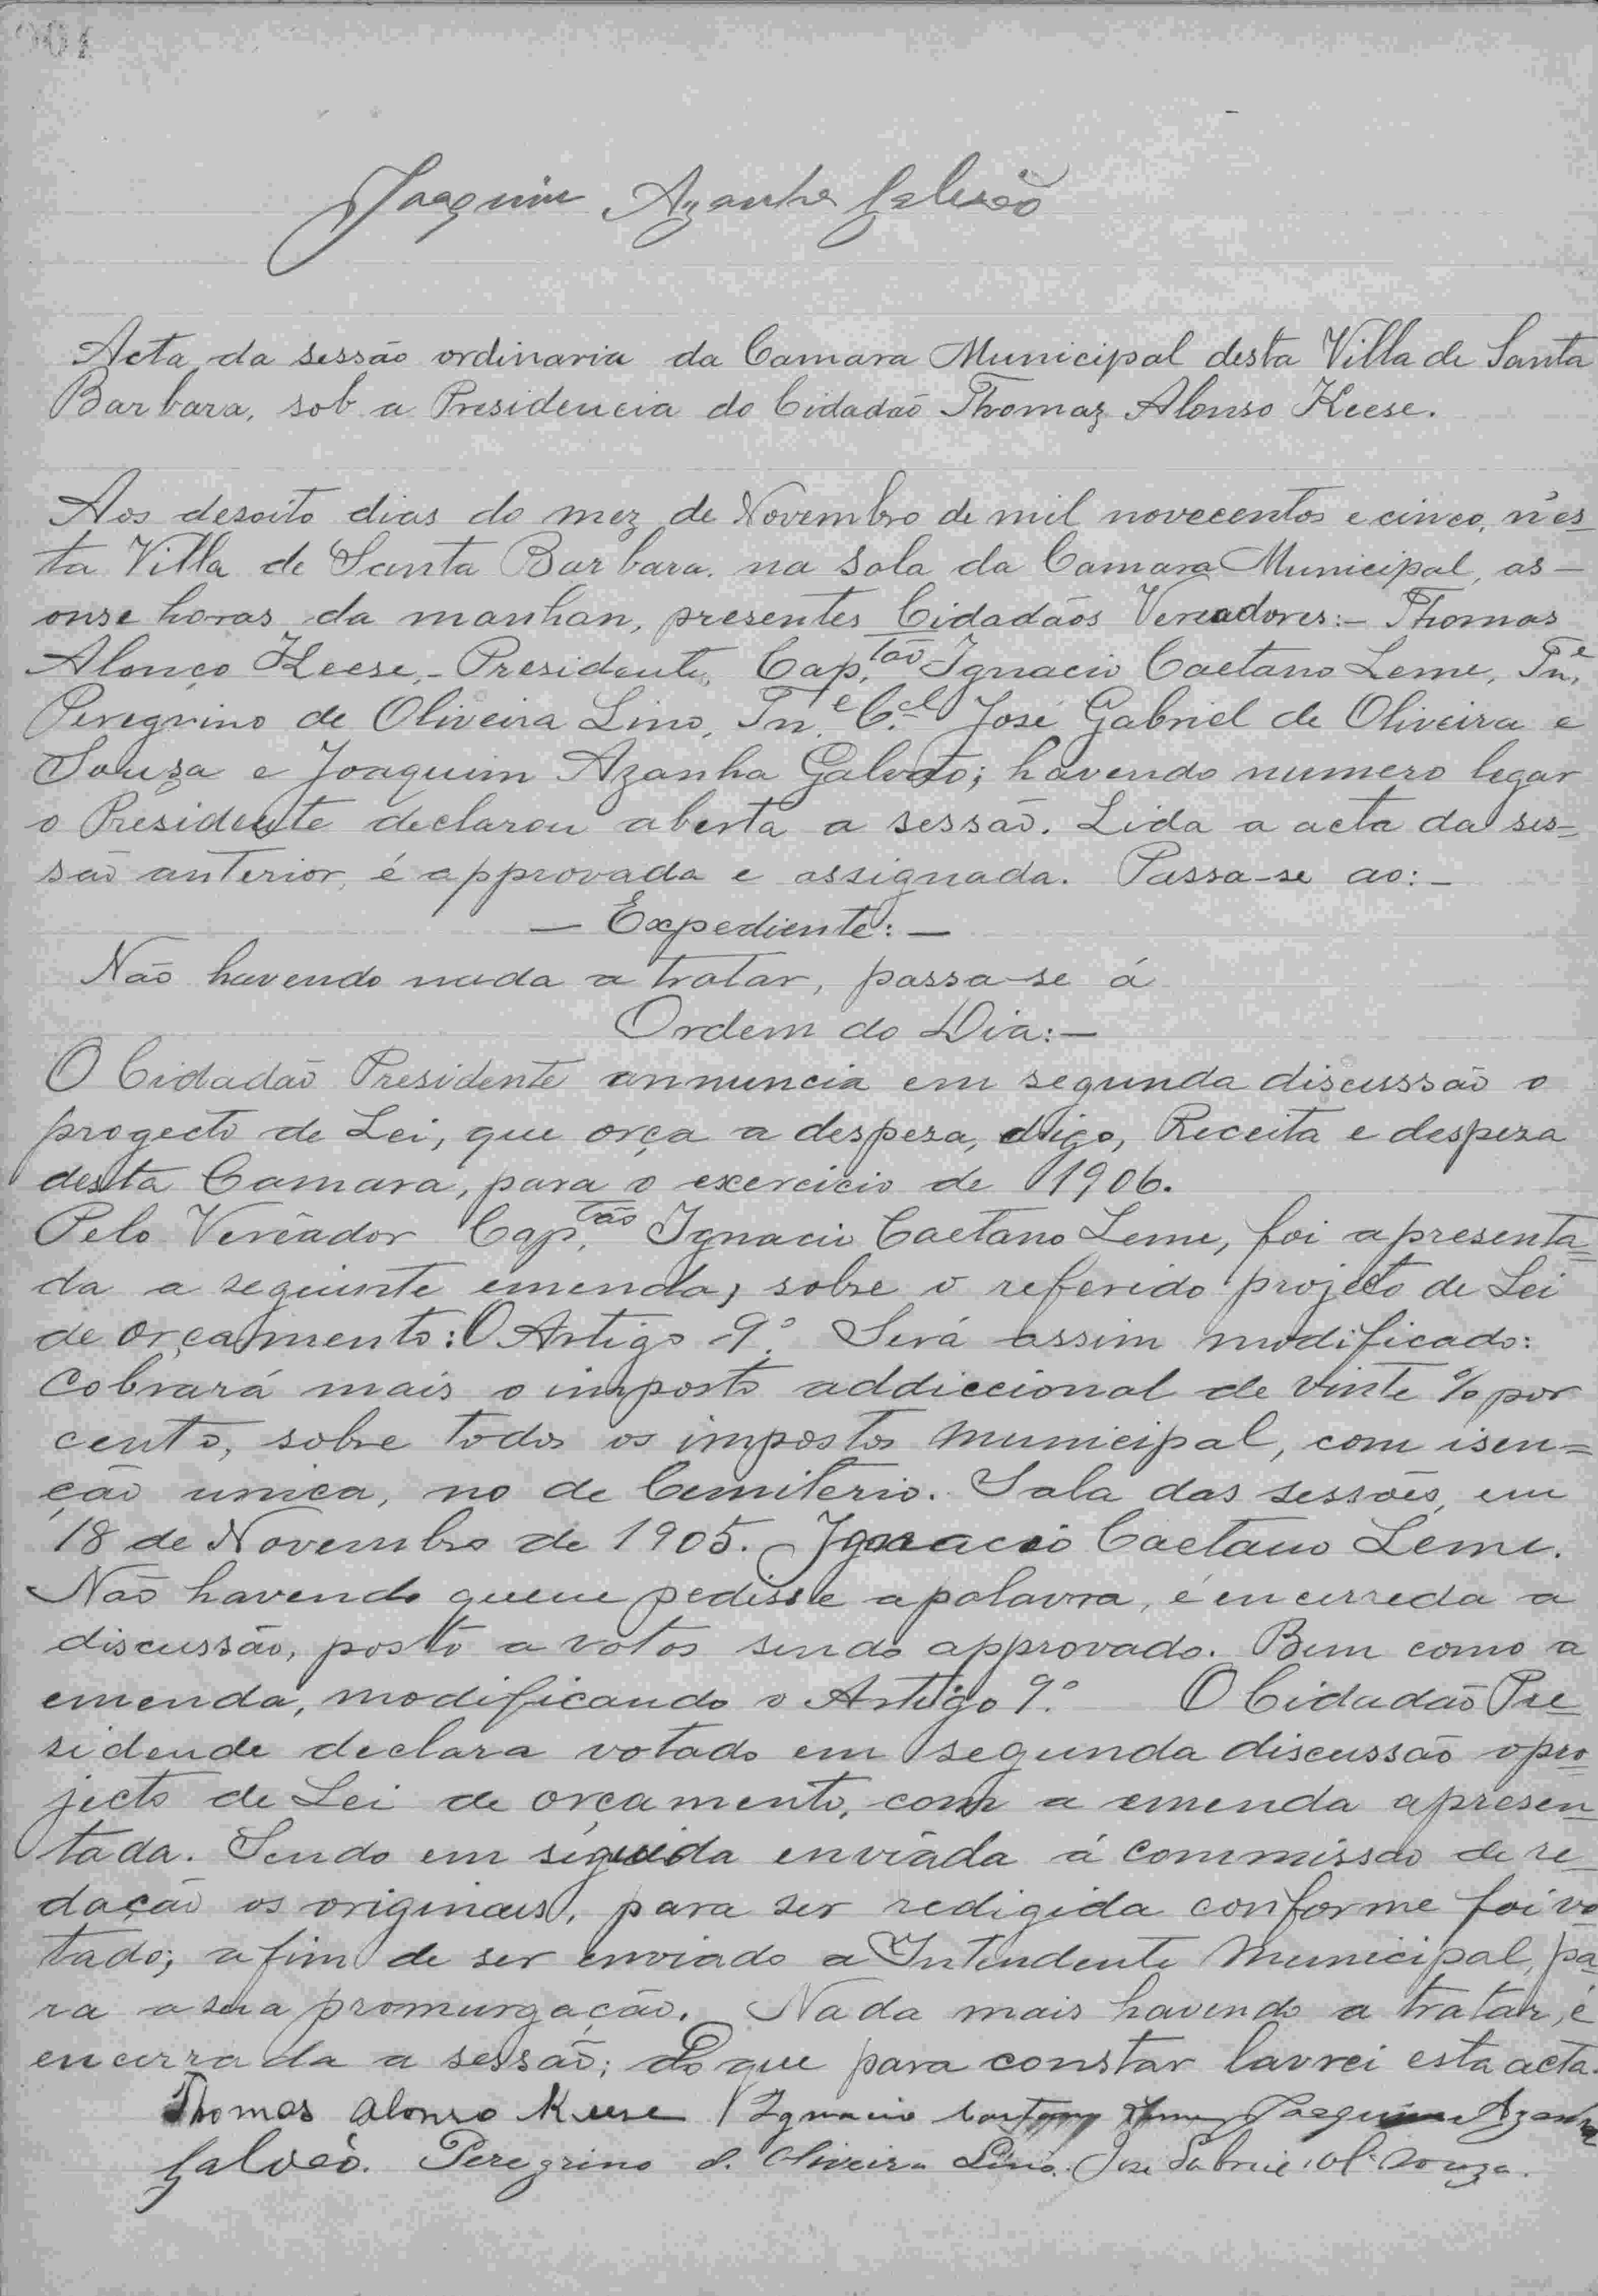 Joaquim Azanha Galvão
Acta da sessão ordinaria da Camara Municipal desta Villa de Santa
Barbara, sob a Presidencia do Cidadão Thomaz Alonso Keese.
Aos desoito dias do mez de Novembro de mil novecentos e cinco, n'es-
ta Villa de Santa Barbara. na Sala da Camara Municipal, as-
onse horas da manhan, presentes Cidadãos Vereadores:- Thomas
Alonço Keese,- Presidente, Cap.tão Ignacio Caetano Leme, Tn.e
Peregrino de Oliveira Lino, Tn.e C.el José Gabriel de Oliveira e
Souza e Joaquim Azanha Galvão; havendo numero legar
o Presidente declarou aberta a sessão. Lida a acta da ses=
são anterior, é approvada e assignada. Passa-se ao:-
— Expediente: —
Não havendo nada a tratar, passa-se á
Ordem do Dia:—
O Cidadão Presidente annuncia em segunda discussão o
progecto de Lei, que orça a despesa, digo, Receita e despesa
desta Camara, para o exercicio de 1906.
Pelo Vereador Cap.tão Ignacio Caetano Leme, foi apresenta=
da a seguinte emenda, sobre o referido projecto de Lei
de orçamento: O Artigo 9º. Será assim modificado:
Cobrará mais o imposto addiccional de vinte % por
cento, sobre todos os impostos Municipal, com isen=
ção unica, no de Cemiterio. Sala das sessões, em
18 de Novembro de 1905. Ignacio Caetano Leme.
Não havendo quem pedisse a palavra, é encerreda a
discussão, posto a votos sendo approvado. Bem como a
emenda, modificando o Artigo 9º. O Cidadão Pre
sidende declara votado em segunda discussão o pro=
jecto de Lei de orçamento, com a emenda apresen
tada. Sendo em seguida enviada á Commissão de re-
dação os originaes, para ser redigida conforme foi vo
tado; afim de ser enviado a Intendente Municipal, pa-
ra a sua promurgação. Nada mais havendo a tratar, é
encerrada a sessão; do que para constar lavrei esta acta.
Thomas Alonso Keese Ignacio Joaquim Azanha
Galvão. Peregrino d. Oliveira Lino. José Gabriel Ol. Souza.